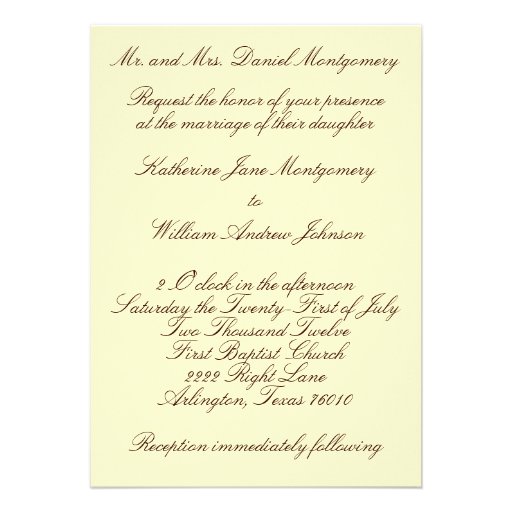 Mr. and Mrs. Daniel Montgomery
Request the honor of your presence
at the marriage of their daughter
Katherine Jane Montgomery
to
William Andrew Johnson
2 O'clock in the afternoon
Saturday the Twenty-First of July
Two Thousand Twelve
First Baptist Church
2222 Right Lane
Arlington, Texas 76010
Reception immediately following